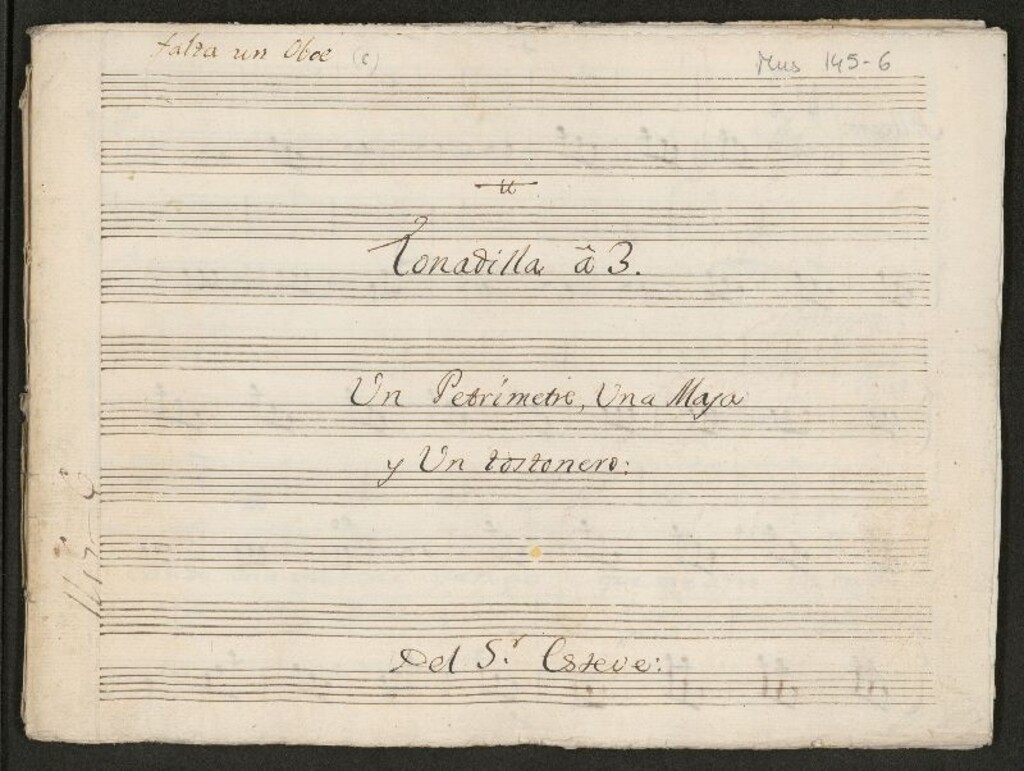 falta un Oboe (c)
Mus 145-6
Tonadilla â 3.
Un Petrimetre, Una Maja
y Un tostonero:
Del S.r Esteve: